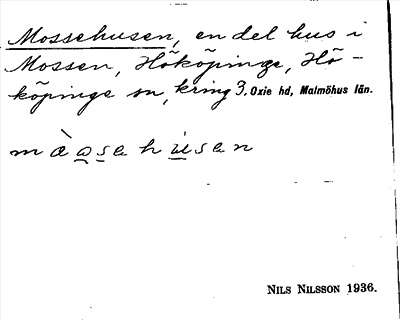 Mossehusen, en del hus i
Mossen, Hököpinge, Hö-
köpinge sn, kring 3. Oxie hd, Malmöhus län.
màosehusen
NILS NILSSON 1936.